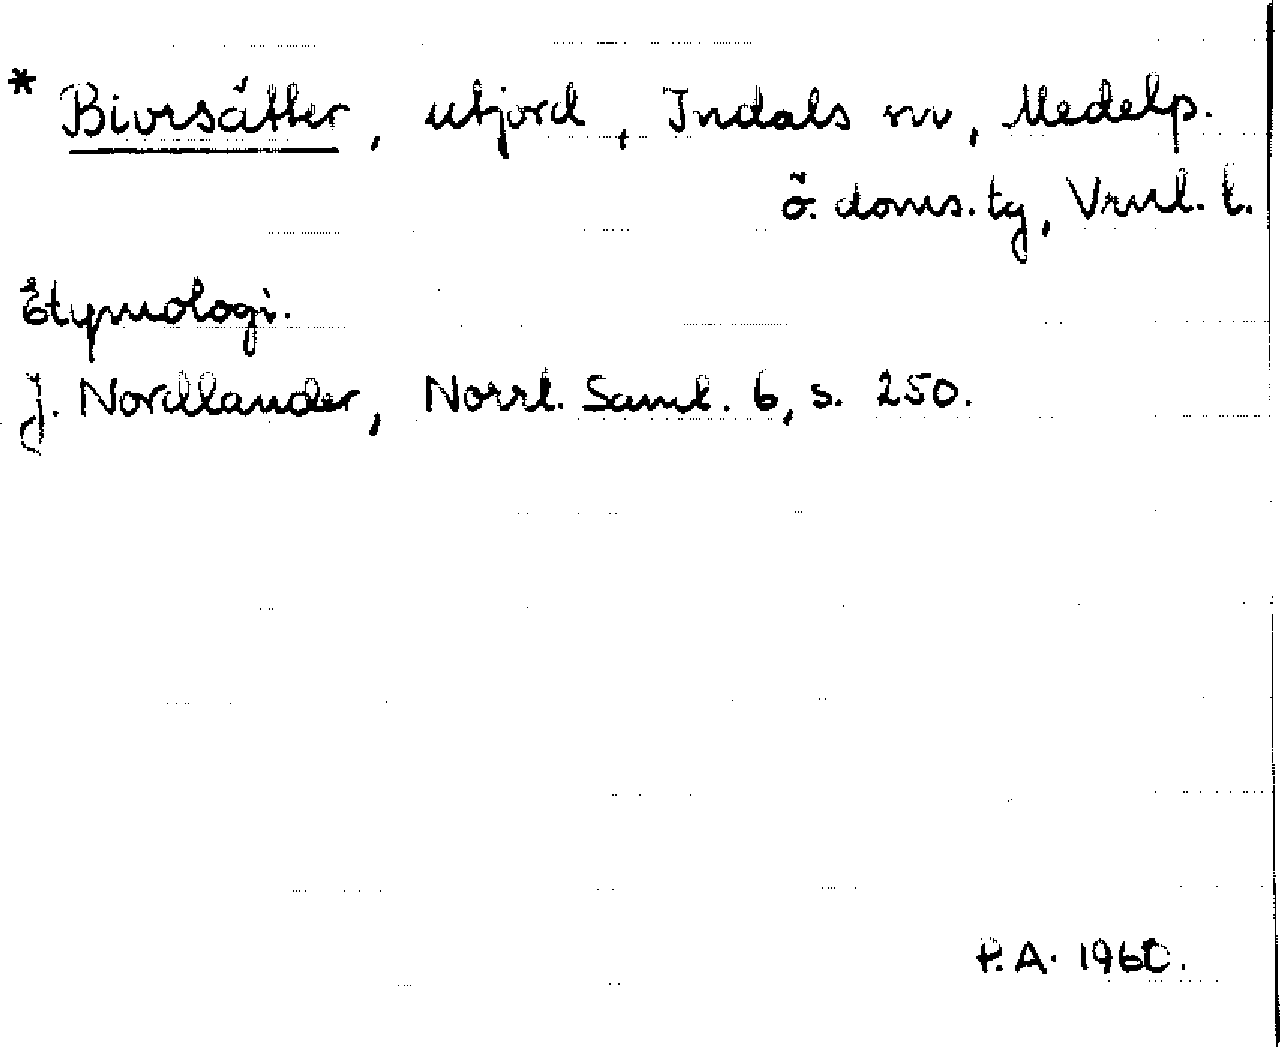 * Bivrsätter, utjord, Indals sn, Medelp.
ö. doms. tg, Vrnl. l.
Etymologi.
J. Nordlander, Norrl. Saml. 6, s. 250.
P.A. 1960.